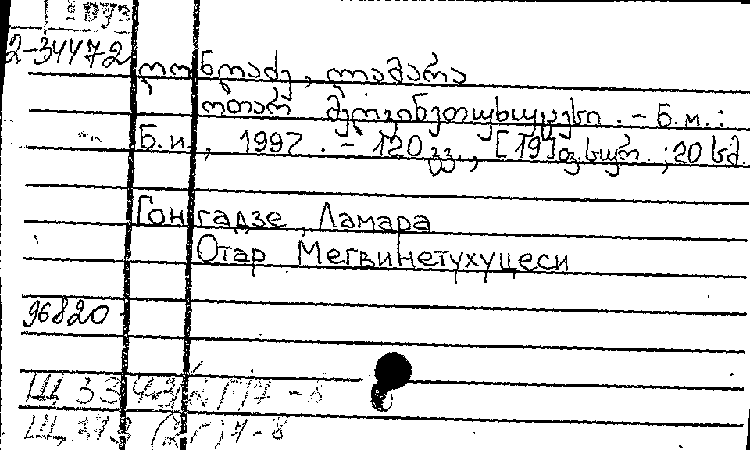 Груз
2-34472
ღონღაძე, ლამარა
ოთარ მეღვინეთუხუცესი. - Б.м.:
Б.и., 1997. - 120 გვ., [19] ფ.სურ.; 20 სმ.
Гонгадзе, Ламара
Отар Мегвинетухуцеси
96820
Щ 33 (2Г)7-8
Щ 373 (2Г)7-8